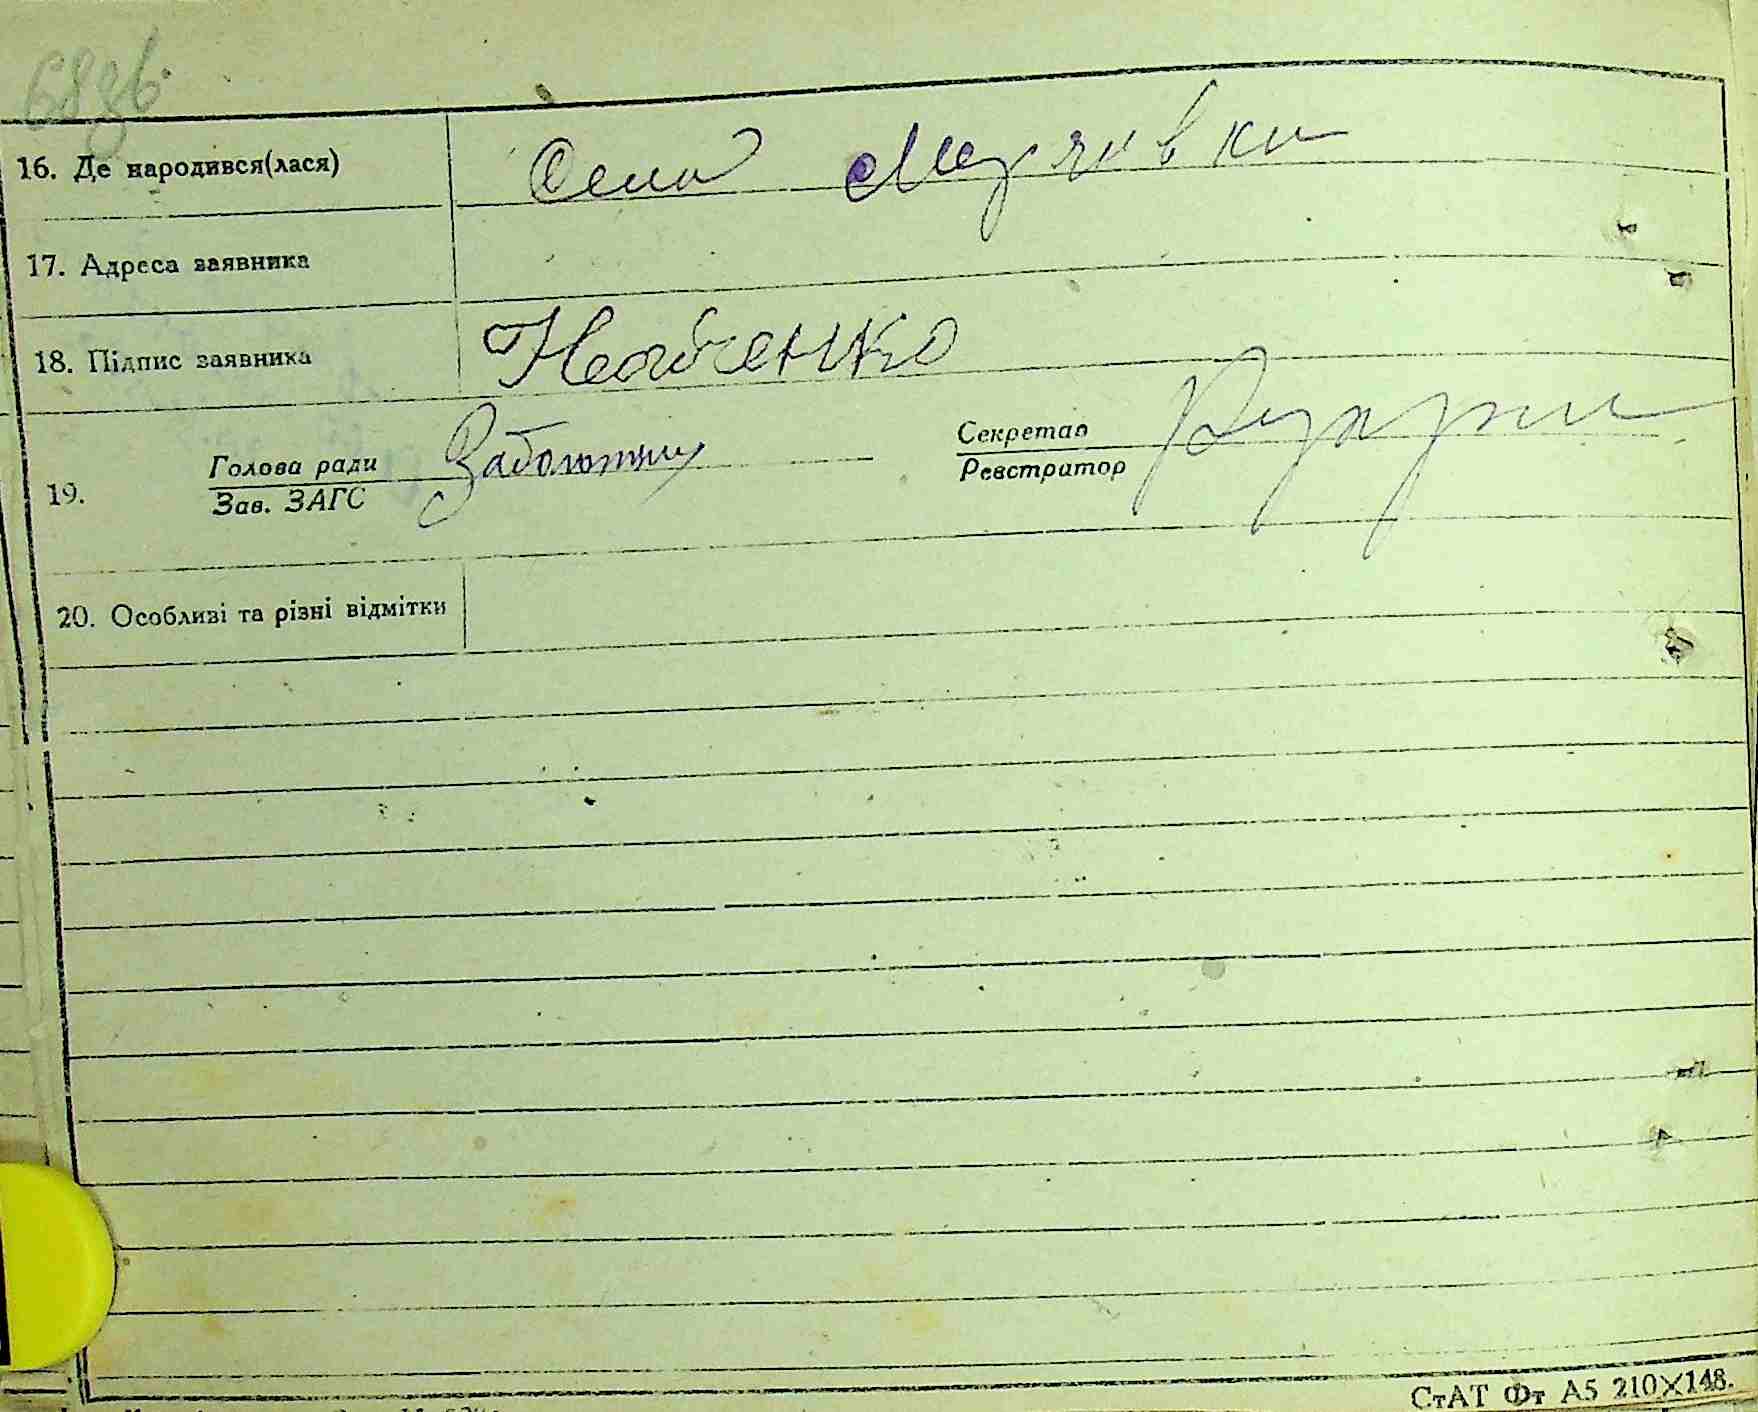 16. Де народився(лася) Село
17. Адреса заявника
18. Підпис заявника
19. Голова ради Заболотний Секретар
Зав. ЗАГС Реєстратор
20. Особливі та різні відмітки
СтАТ Фт А5 210×148.